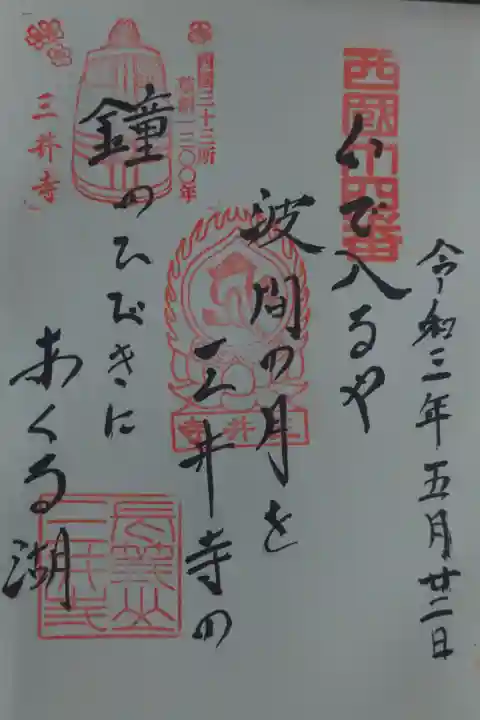 令和三年五月廿二日
西國十四番
いで入るや
波間の月を
三井寺の
鐘のひびきに
あくる湖
西国三十三所
草創一三〇〇年
三井寺
三井寺